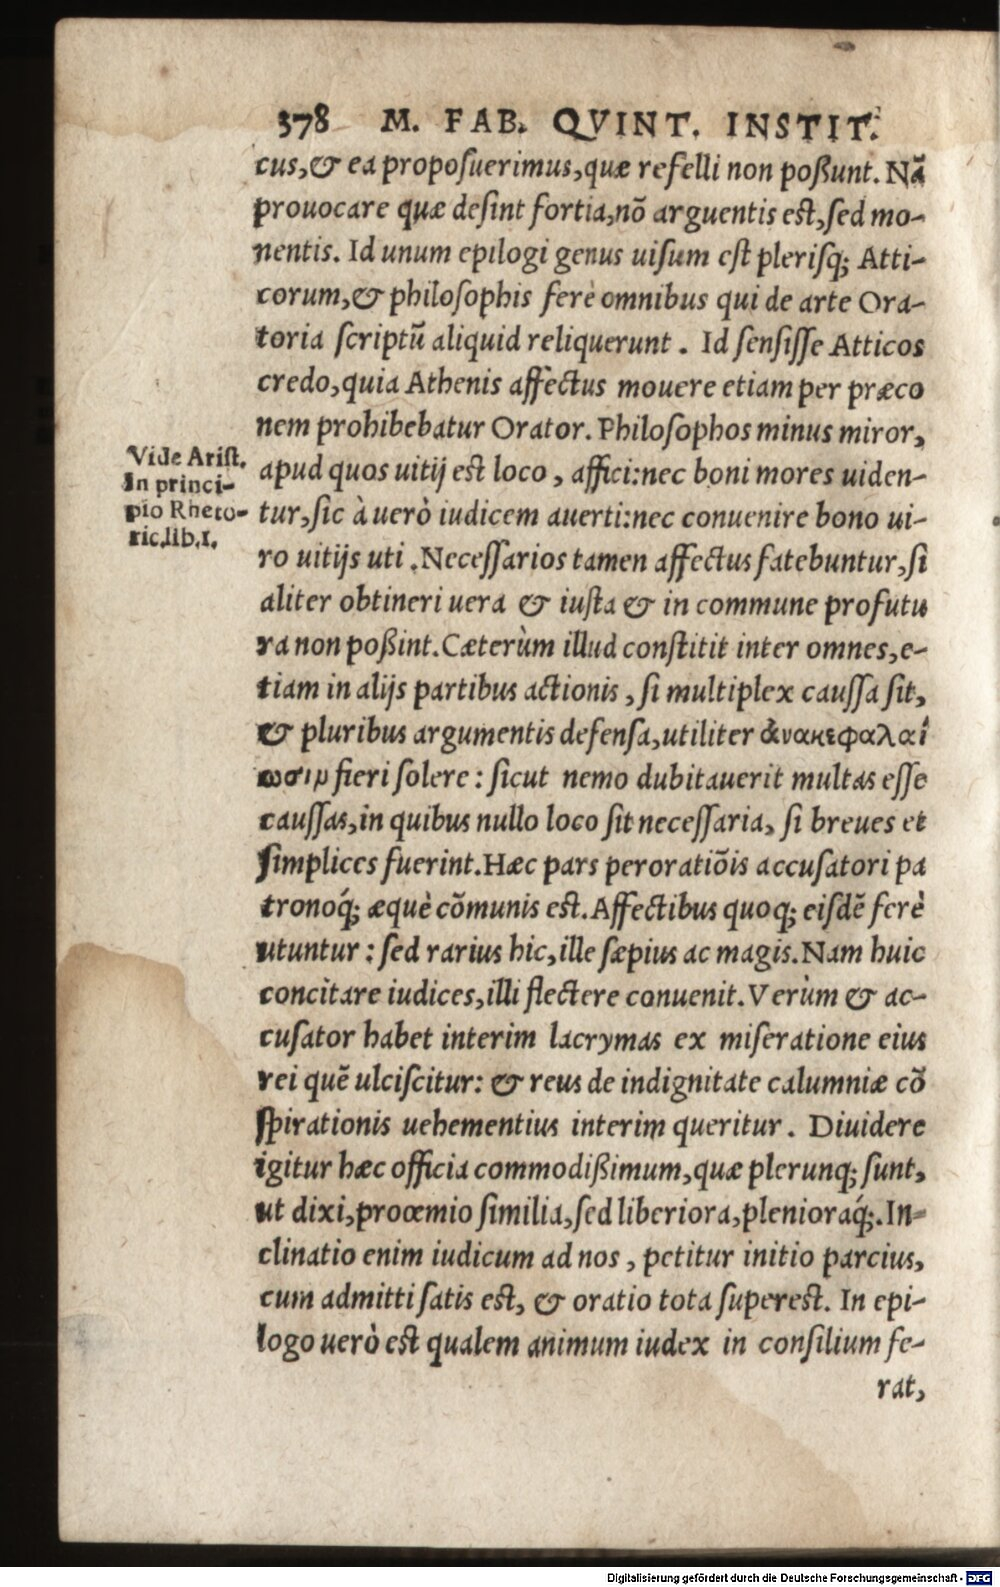 378 M. FAB. QVINT. INSTIT.
cus,& ea proposuerimus,quæ refelli non poßunt. Nā
prouocare quæ desint fortia,nō arguentis est,sed mo-
nentis. Id unum epilogi genus uisum est plerisq; Atti-
corum,& philosophis ferè omnibus qui de arte Ora-
toria scriptū aliquid reliquerunt. Id sensisse Atticos
credo,quia Athenis affectus mouere etiam per præco
nem prohibebatur Orator. Philosophos minus miror,
Vide Arist.
In princi-
pio Rheto-
ric.lib.1.
apud quos uitij est loco, affici:nec boni mores uiden-
tur,sic à uerò iudicem auerti:nec conuenire bono ui-
ro uitijs uti. Necessarios tamen affectus fatebuntur,si
aliter obtineri uera & iusta & in commune profutu
ra non poßint. Cæterùm illud constitit inter omnes,e-
tiam in alijs partibus actionis, si multiplex caussa sit,
& pluribus argumentis defensa,utiliter ἀνακεφαλαί
ωσιν fieri solere: sicut nemo dubitauerit multas esse
caussas,in quibus nullo loco sit necessaria, si breues et
simplices fuerint. Hæc pars peroratiōis accusatori pa
tronoq́; æquè cōmunis est. Affectibus quoq; eisdē ferè
utuntur: sed rarius hic,ille sæpius ac magis. Nam huic
concitare iudices,illi flectere conuenit. Verùm & ac-
cusator habet interim lacrymas ex miseratione eius
rei quē ulciscitur: & reus de indignitate calumniæ cō
spirationis uehementius interim queritur. Diuidere
igitur hæc officia commodißimum,quæ plerunq; sunt,
ut dixi,prooemio similia,sed liberiora,plenioraq́;. In-
clinatio enim iudicum ad nos, petitur initio parcius,
cum admitti satis est, & oratio tota superest. In epi-
logo uerò est qualem animum iudex in consilium fe-
rat,
Digitalisierung gefördert durch die Deutsche Forschungsgemeinschaft - DFG